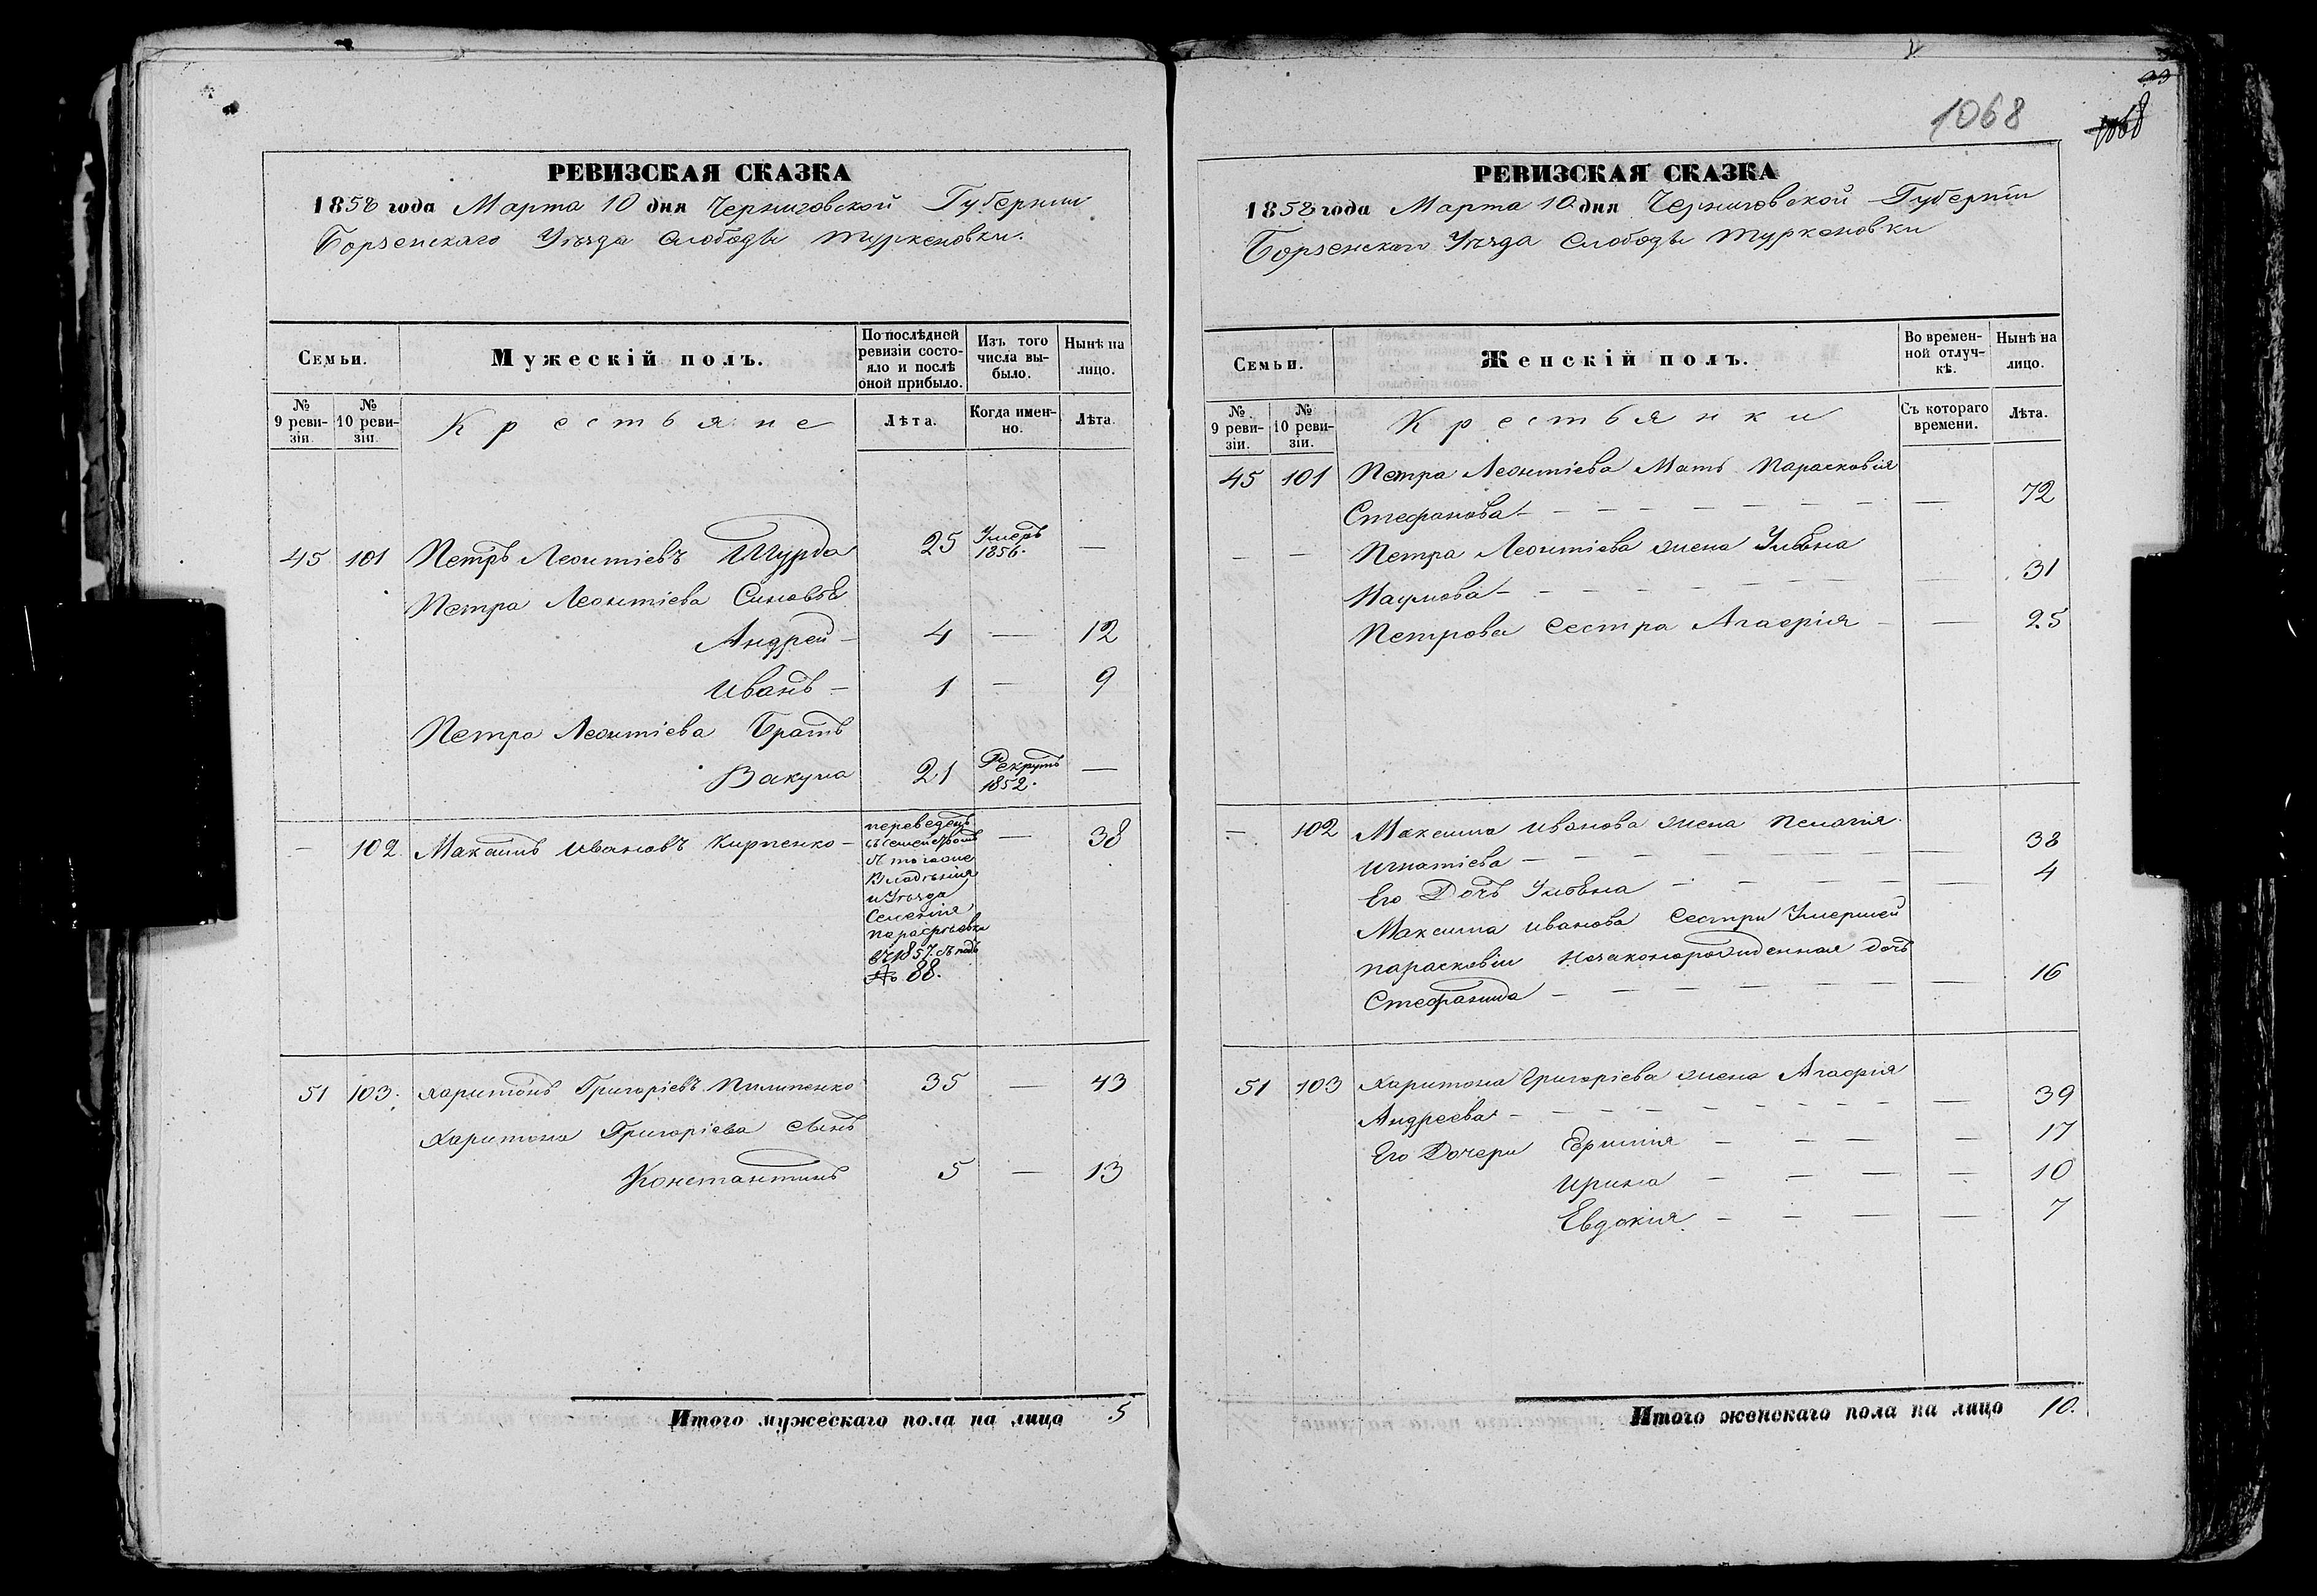 РЕВИЗСКАЯ СКАЗКА
1858 года Марта 10 дня Черниговской Губернии
Борзенскаго Уѣзда Слободы Туркеновки.
Семьи.
Мужескій полъ.
По послѣдней ревизіи состояло и послѣ оной прибыло.
Изъ того числа выбыло.
Нынѣ на лицо.
№ 9 ревизіи.
№ 10 ревизіи.
Крестьяне
Лѣта.
Когда именно.
Лѣта.
45 101 Петръ Леонтіевъ Шурда 25 Умеръ 1856. —
Петра Леонтіева Сыновья
Андрей — 4 — 12
Иванъ — 1 — 9
Петра Леонтіева Братъ
Вакула 21 Рекрутъ 1852. —
— 102 Максимъ Ивановъ Кирпенко — — 38
переведенъ
съ семействомъ
владѣнія
и Уѣзда
въ 1857 г. подъ
№ 88.
51 103. Харитонъ Григоріевъ Пилипенко 35 — 43
Харитона Григоріева Сынъ
Константинъ 5 — 13
Итого мужескаго пола на лицо 5
1068
1068
РЕВИЗСКАЯ СКАЗКА
1858 года Марта 10 дня Черниговской Губерніи
Борзенскаго Уѣзда Слободы Туркеновки
Семьи.
Женскій полъ.
Во временной отлучкѣ.
Нынѣ на лицо.
№ 9 ревизіи.
№ 10 ревизіи.
Крестьянки
Съ котораго времени.
Лѣта.
45 101 Петра Леонтіева Мать Парасковія
Стефанова — — 72
— — Петра Леонтіева жена Ульяна
Наумова — — 31
Петрова Сестра Агафія — — 25
— 102 Максима Иванова жена Пелагія
Игнатіева — — 38
Его Дочь Ульяна — — 4
Максима Иванова Сестры Умершей
Парасковіи Незаконорожденная дочь
Стефанида — — 16
51 103 Харитона Григоріева жена Агафія
Андреева — — 39
Его Дочери — — 17
Ирина — — 10
Евдокія — — 7
Итого женскаго пола на лицо 10.